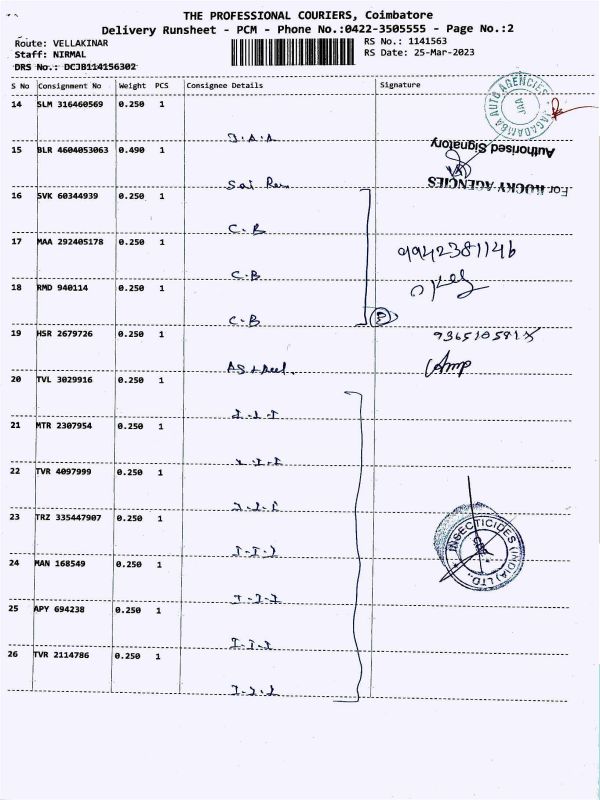 THE PROFESSIONAL COURIERS, Coimbatore
Delivery Runsheet - PCM - Phone No.:0422-3505555 - Page No.:2
Route: VELLAKINAR
RS No.: 1141563
Staff: NIRMAL
RS Date: 25-Mar-2023
DRS No.: DCJB114156302
S No Consignment No Weight PCS Consignee Details Signature
14 SLM 316460569 0.250 1
J.A.A
JAGADAMBA AUTO AGENCIES
JAA
15 BLR 4604053063 0.490 1
Sai Ram
For ROCKY AGENCIES
Authorised Signatory
16 SVK 60344939 0.250 1
C.B
17 MAA 292405178 0.250 1
C.B
9942381146
18 RMD 940114 0.250 1
C.B
19 HSR 2679726 0.250 1
20 TVL 3029916 0.250 1
I.I.I
21 MTR 2307954 0.250 1
I.I.I
22 TVR 4097999 0.250 1
I.I.I
23 TRZ 335447907 0.250 1
I.I.I
INSECTICIDES (INDIA) LTD.,
CBE
24 MAN 168549 0.250 1
I.I.I
25 APY 694238 0.250 1
I.I.I
26 TVR 2114786 0.250 1
I.I.I